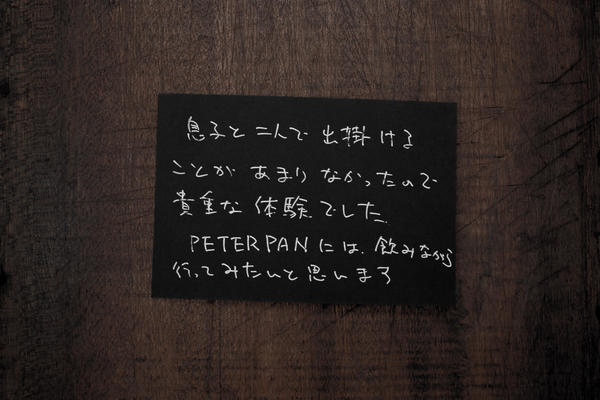 息子と二人で出掛ける
ことがあまりなかったので
貴重な体験でした
PETERPANには、飲みながら
行ってみたいと思います